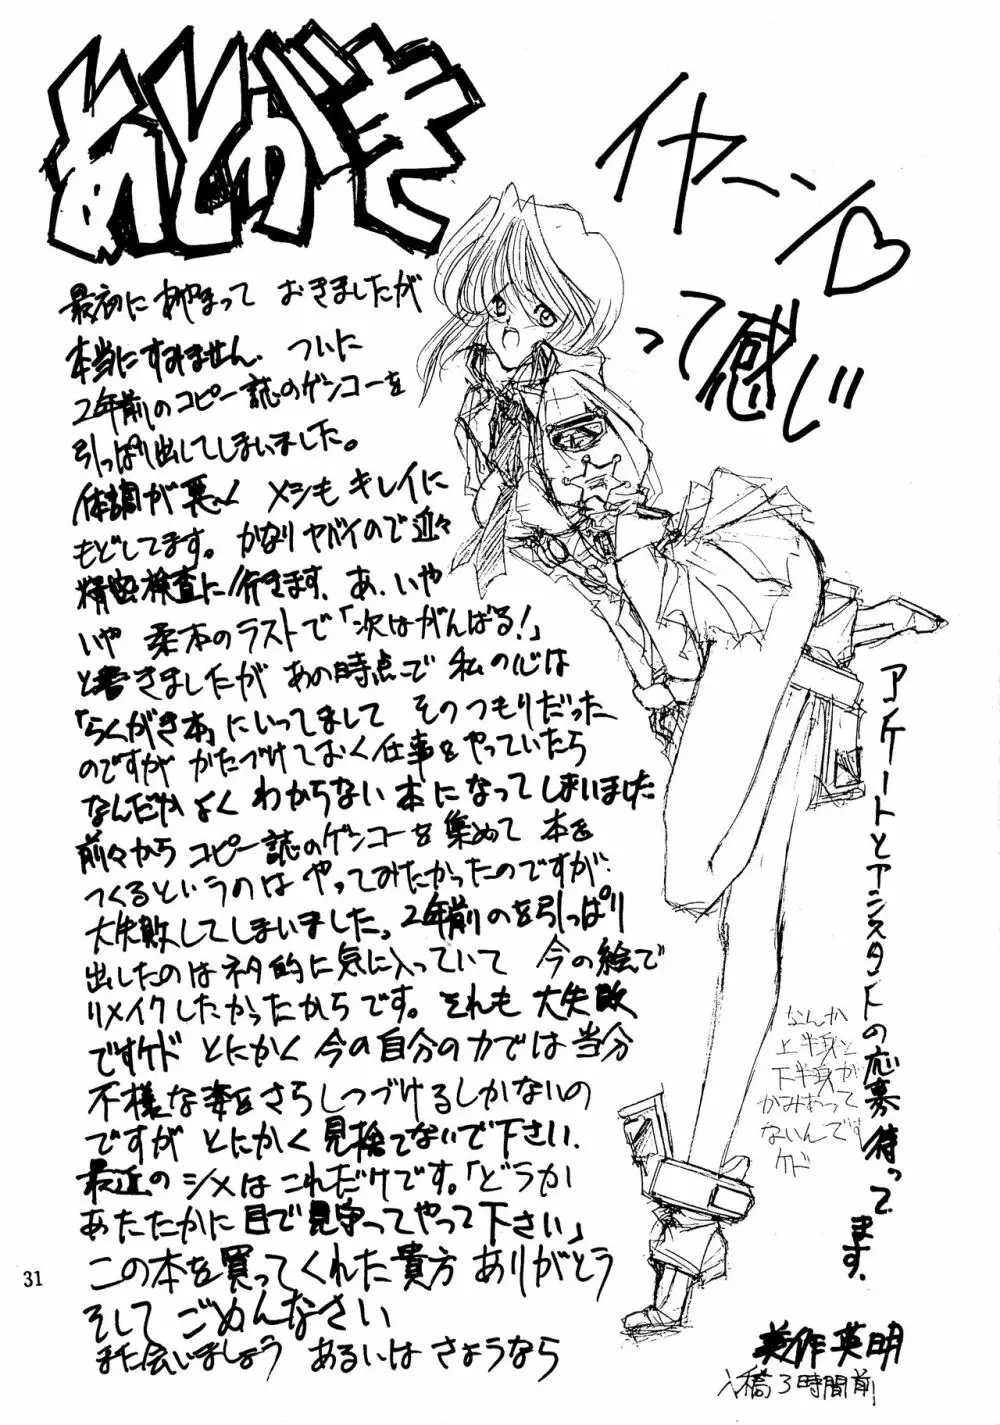 あとがき
イヤーン♡
って感じ
最初にあやまって おきましたが
本当にすみません。ついに
2年前のコピー誌のゲンコーを
引っぱり出してしまいました。
体調が悪く メシも キレイに
もどしてます。かなりヤバイので近々
精密検査に行きます。あ、いや
いや 柔本のラストで「次はがんばる!」
と書きましたが あの時点で 私の心は
「らくがき本」にいってまして そのつもりだった
のですが かたづけておく仕事をやっていたら
なんだかよく わからない 本になってしまいました
前々から コピー誌のゲンコーを集めて 本を
つくるというのは やってみたかったのですが
大失敗してしまいました。2年前のを引っぱり
出したのはネタ的に気に入っていて 今の絵で
リメイクしたかったからです。それも 大失敗
ですケド とにかく 今の自分の力では 当分
不様な姿をさらしつづけるしかないの
ですが とにかく 見捨てないで下さい。
最近のシメは これだけです。「どうか
あたたかに目で見守ってやって下さい」
この本を買ってくれた貴方 ありがとう
そして ごめんなさい
また会いましょう あるいは さようなら
アンケートとアシスタントの応募待ってます。
なんか
上半身と
下半身が
かみあって
ないんです
ケド
美作英明
入稿3時間前!
31